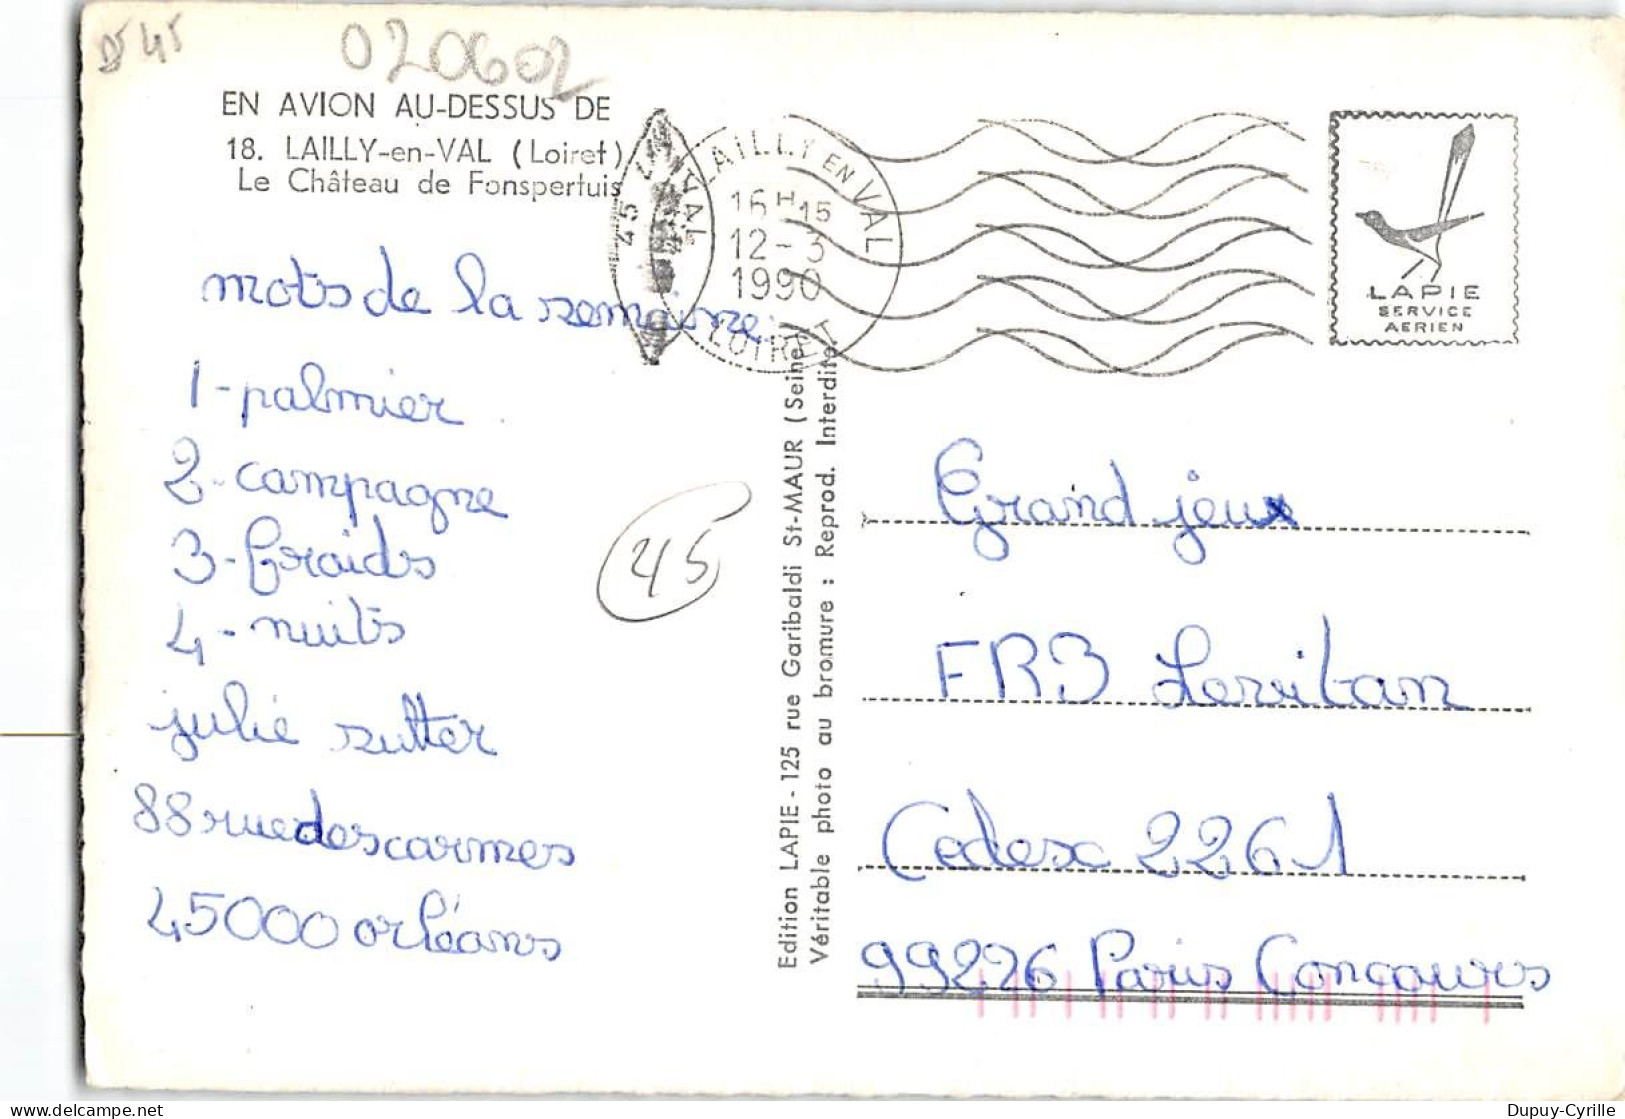 D 45
020602
EN AVION AU-DESSUS DE
18. LAILLY-en-VAL (Loiret)
Le Château de Fonspertuis
45
VAL
LAILLY EN VAL
16H15
12-3
1990
LOIRET
LAPIE
SERVICE
AERIEN
mots de la semaine.
1-palmier
2-campagne
3-froids
4-nuits
julie sutter
88 rue des carmes
45000 orléans
45
Edition LAPIE - 125 rue Garibaldi St-MAUR (Seine
Véritable photo au bromure : Reprod. Interdite
Grand jeux
FR3 Levitan
Cedex 2261
99226 Paris Concours
Dupuy-Cyrille
delcampe.net